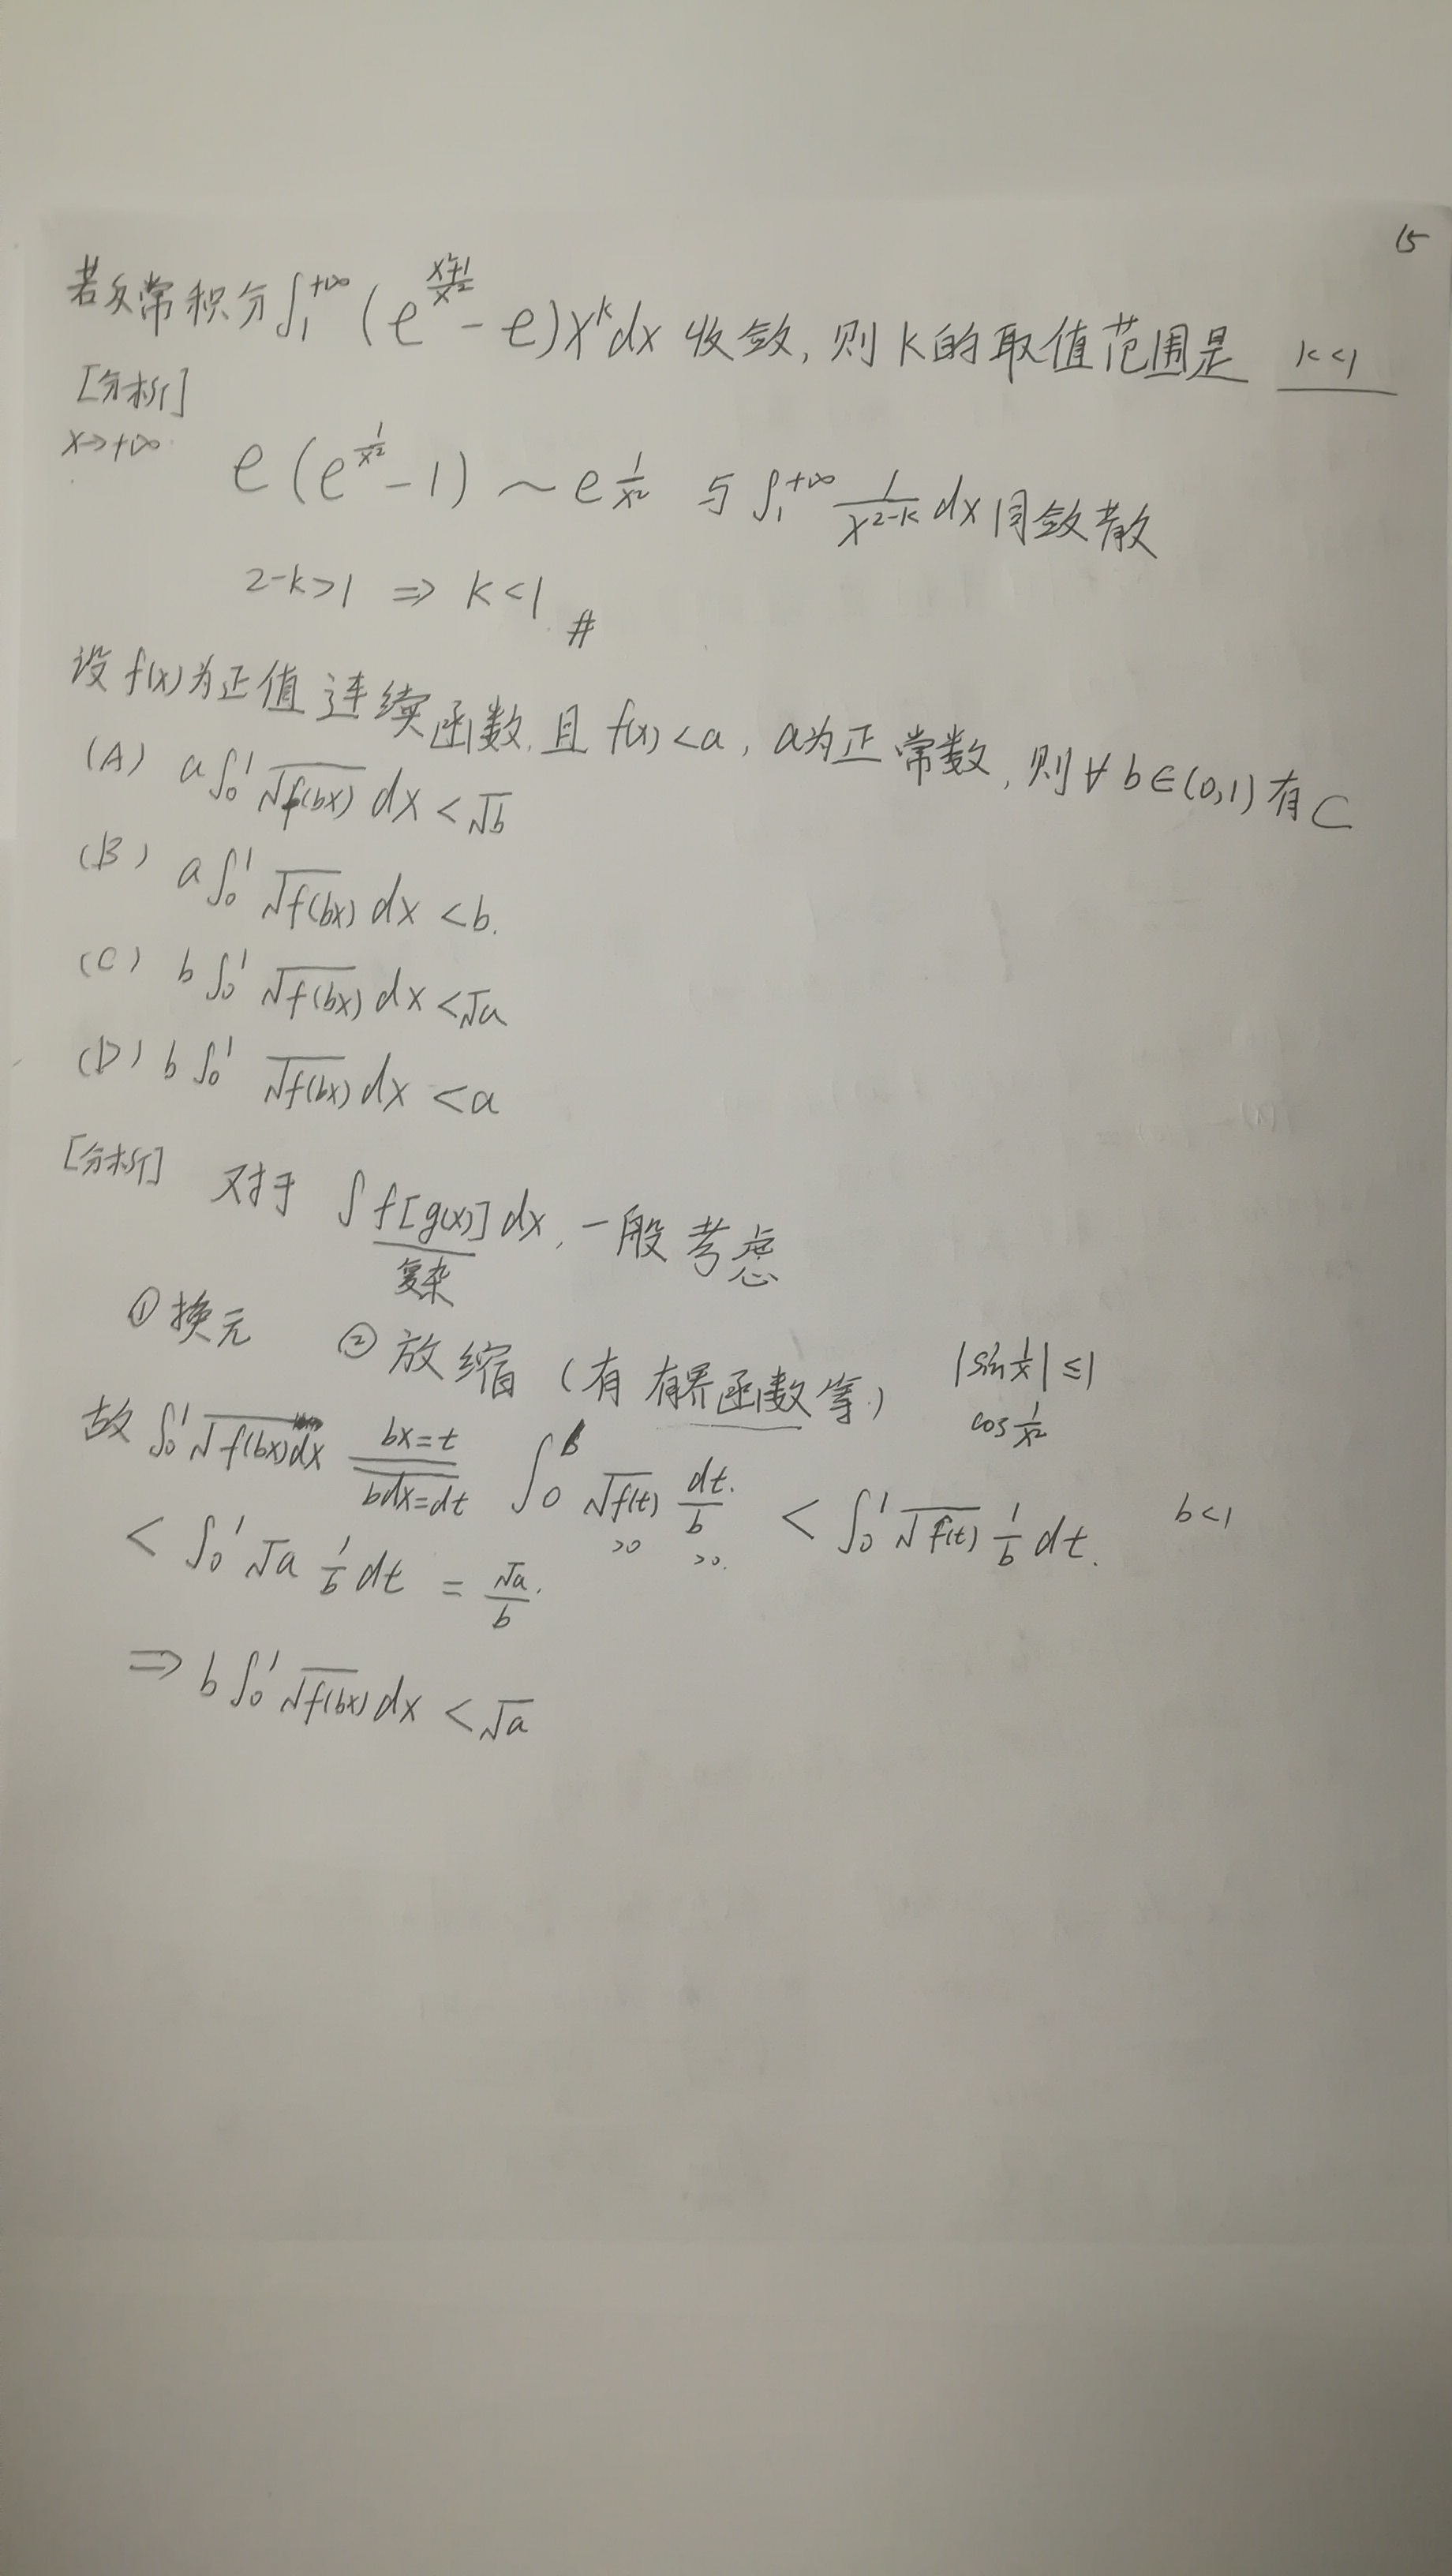 15
若反常积分∫₁^{+∞}(e^{\frac{x²+1}{x²}}-e)x^k dx 收敛,则k的取值范围是 k<1
[分析]
x→+∞ e(e^{\frac{1}{x²}}-1)~e\frac{1}{x²} 与∫₁^{+∞}\frac{1}{x^{2-k}}dx同敛散
2-k>1 ⇒ k<1 #
设f(x)为正值连续函数,且f(x)<a,a为正常数,则∀b∈(0,1)有C
(A) a∫₀¹√f(bx) dx<√b
(B) a∫₀¹√f(bx) dx<b.
(C) b∫₀¹√f(bx) dx<√a
(D) b∫₀¹√f(bx) dx<a
[分析] 对于 ∫f[g(x)]dx,一般考虑
复杂
①换元 ②放缩(有有界函数等) |sin\frac{1}{x}|≤1
cos\frac{1}{x²}
故∫₀¹√f(bx)dx \frac{bx=t}{bdx=dt} ∫₀^b √f(t) \frac{dt.}{b} < ∫₀¹√f(t) \frac{1}{b}dt. b<1
>0 >0.
< ∫₀¹√a \frac{1}{b}dt = \frac{√a}{b}.
⇒ b∫₀¹√f(bx)dx<√a